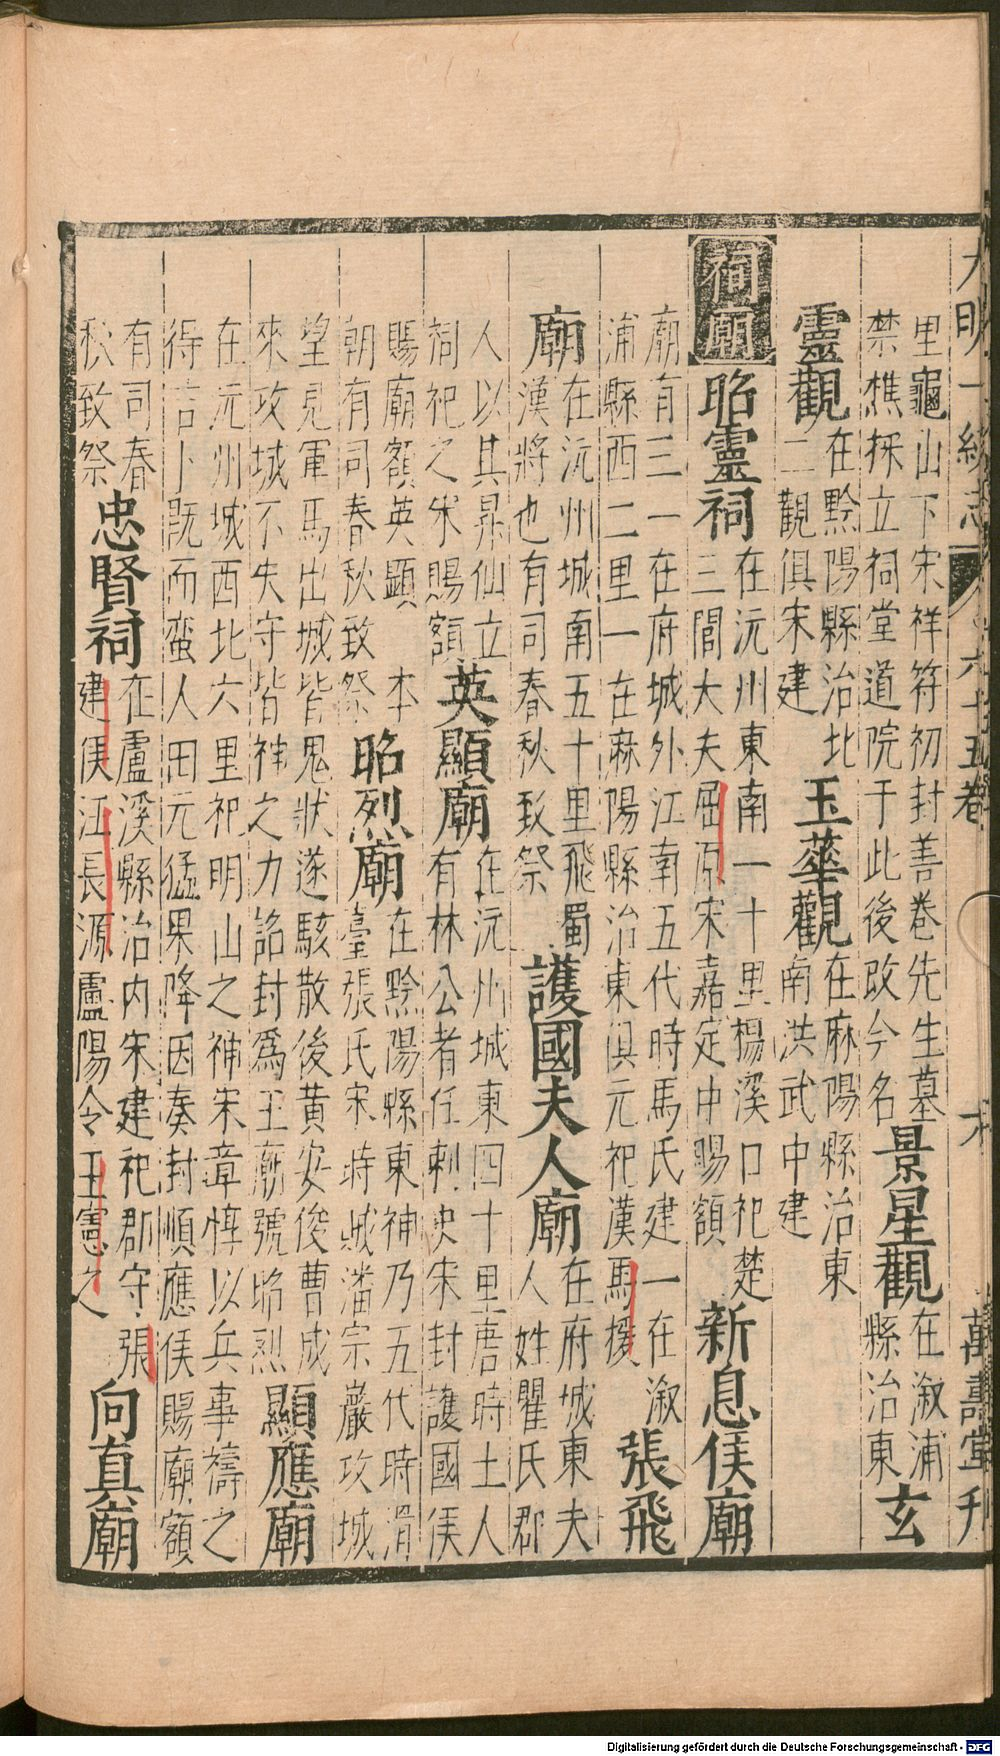 大明一統志 六十五卷 六 萬壽堂刊
里龜山下宋祥符初封善卷先生墓
禁樵採立祠堂道院于此後改今名
景星觀
在溆浦
縣治東
玄
靈觀
在黔陽縣治北
二觀俱宋建
玉華觀
在麻陽縣治東
南洪武中建
祠廟
昭靈祠
在沅州東南一十里楊溪口祀楚
三閭大夫屈原宋嘉定中賜額
新息侯廟
廟有三一在府城外江南五代時馬氏建一在溆
浦縣西二里一在麻陽縣治東俱元祀漢馬援
張飛
廟
在沅州城南五十里飛蜀
漢將也有司春秋致祭
護國夫人廟
在府城東夫
人姓瞿氏郡
人以其昇仙立
祠祀之宋賜額
英顯廟
在沅州城東四十里唐時土人
有林公者任刺史宋封護國侯
賜廟額英顯 本
朝有司春秋致祭
昭烈廟
在黔陽縣東神乃五代時滑
臺張氏宋時賊潘宗巖攻城
望見軍馬出城皆鬼狀遂駭散後黄安俊曹成
來攻城不失守皆神之力詔封爲王廟號昭烈
顯應廟
在沅州城西北六里祀明山之神宋章惇以兵事禱之
得吉卜既而蠻人田元猛果降因奏封順應侯賜廟額
有司春
秋致祭
忠賢祠
在盧溪縣治内宋建祀郡守張
建侯江長源盧陽令王憲之
向真廟
Digitalisierung gefördert durch die Deutsche Forschungsgemeinschaft - DFG